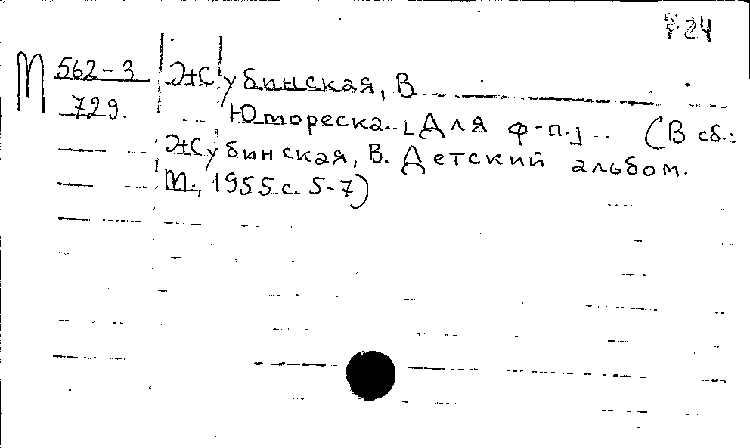 М 562-3 Жубинская, В
729.
Юмореска. [Для ф-п.] (В сб.:
Жубинская, В. Детский альбом.
М., 1955 с. 5-7)